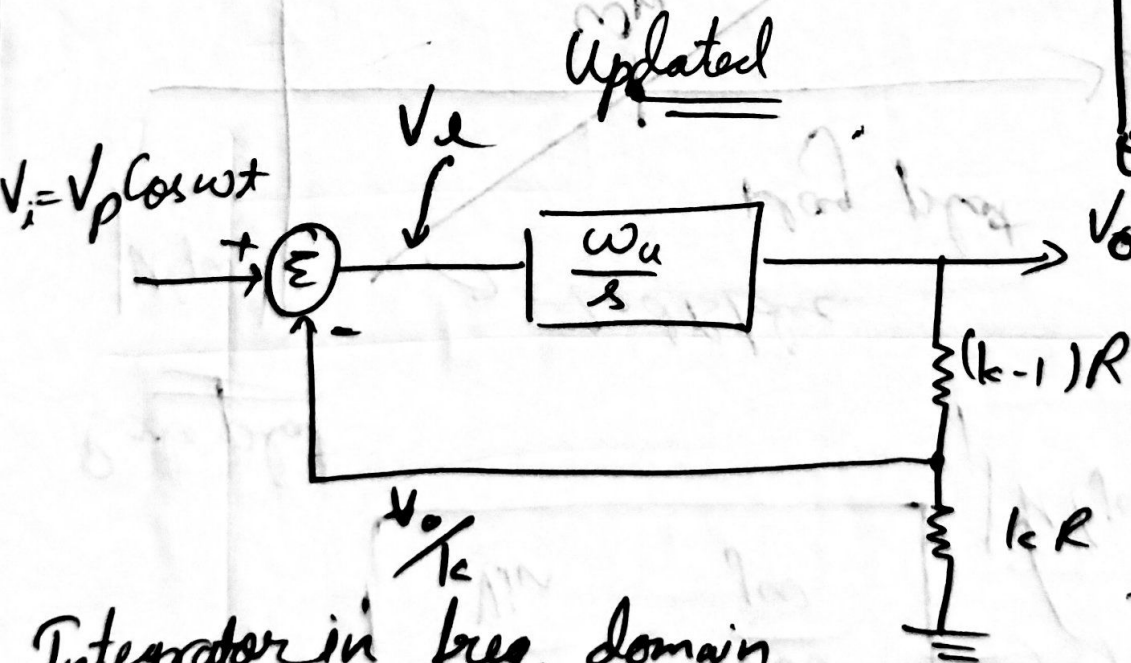 Updated
Ve
Vi = Vp Cos ωt
+
Σ
ωu/s
Vo
-
(k-1)R
Vo/k
kR
Integrator in freq. domain